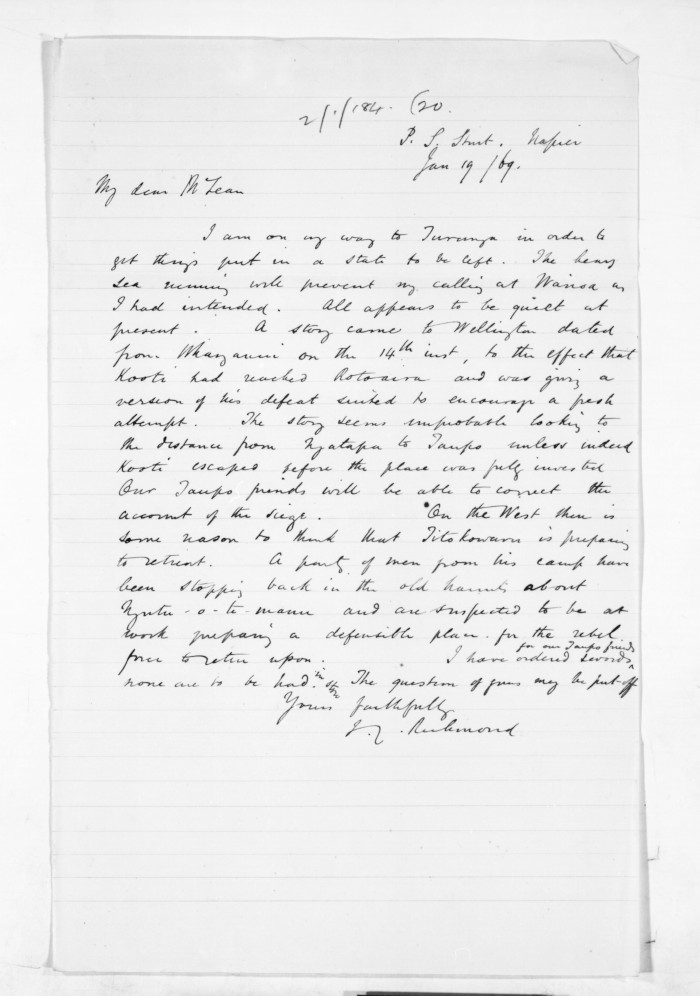 2/1/184. (20.
P. S. Sturt. Napier
Jan 19 /69.
My dear McLean
I am on my way to Turanga in order to
get things put in a state to be left. The heavy
sea running will prevent my calling at Wairoa as
I had intended. All appears to be quiet at
present. A story came to Wellington dated
from Whanganui on the 14th inst, to the effect that
Kooti had reached Rotoaira and was giving a
version of his defeat suited to encourage a fresh
attempt. The story seems improbable looking to
the distance from Ngatapa to Taupo unless indeed
Kooti escaped before the place was fully invested
Our Taupo friends will be able to correct the
account of the siege. On the West there is
some reason to think that Titokowaru is preparing
to retreat. A party of men from his camp have
been stopping back in the old haunts about
Ngutu-o-te-manu and are suspected to be at
work preparing a defensible place for the rebel
force to retire upon. I have ordered swords for our Taupo friends
none are to be had in store The question of guns may be put off
Yours faithfully
J. C. Richmond